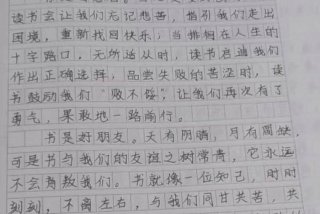 读书会让我们忘记悲苦,指引我们走出
困境,重新找回快乐;当徘徊在人生的
十字路口,无所适从时,读书启迪我们
作出正确选择,品尝失败的苦涩时,读
书鼓励我们“败不馁”,让我们再次有了
勇气,果敢地一路前行。
书是好朋友。天有阴晴,月有圆缺,
可是书与我们的友谊之树常青,它永远
不会背叛我们。书就像一位知己,时时
刻刻,不离左右,与我们同甘共苦,共